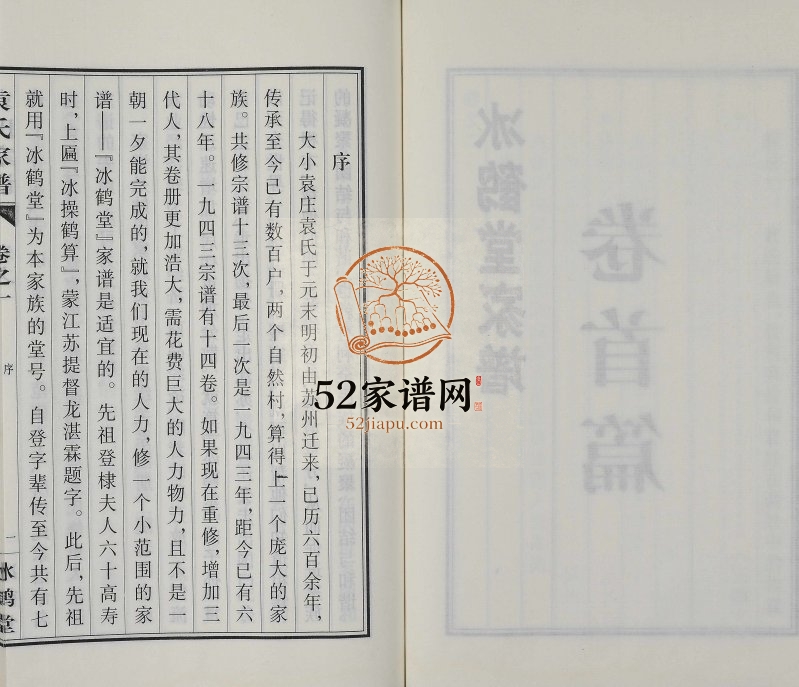 序
大小袁庄袁氏于元末明初由苏州迁来，已历六百余年，
传承至今已有数百户，两个自然村，算得上一个庞大的家
族。共修宗谱十三次，最后一次是一九四三年，距今已有六
十八年。一九四三宗谱有十四卷。如果现在重修，增加三
代人，其卷册更加浩大，需花费巨大的人力物力，且不是一
朝一夕能完成的，就我们现在的人力，修一个小范围的家
谱——『冰鹤堂』家谱是适宜的。先祖登棣夫人六十高寿
时，上匾『冰操鹤算』，蒙江苏提督龙湛霖题字。此后，先祖
就用『冰鹤堂』为本家族的堂号。自登字辈传至今共有七
袁氏家谱
卷之一
序
一
冰鹤堂
冰鹤堂家谱
卷首篇
52家谱网
52jiapu.com